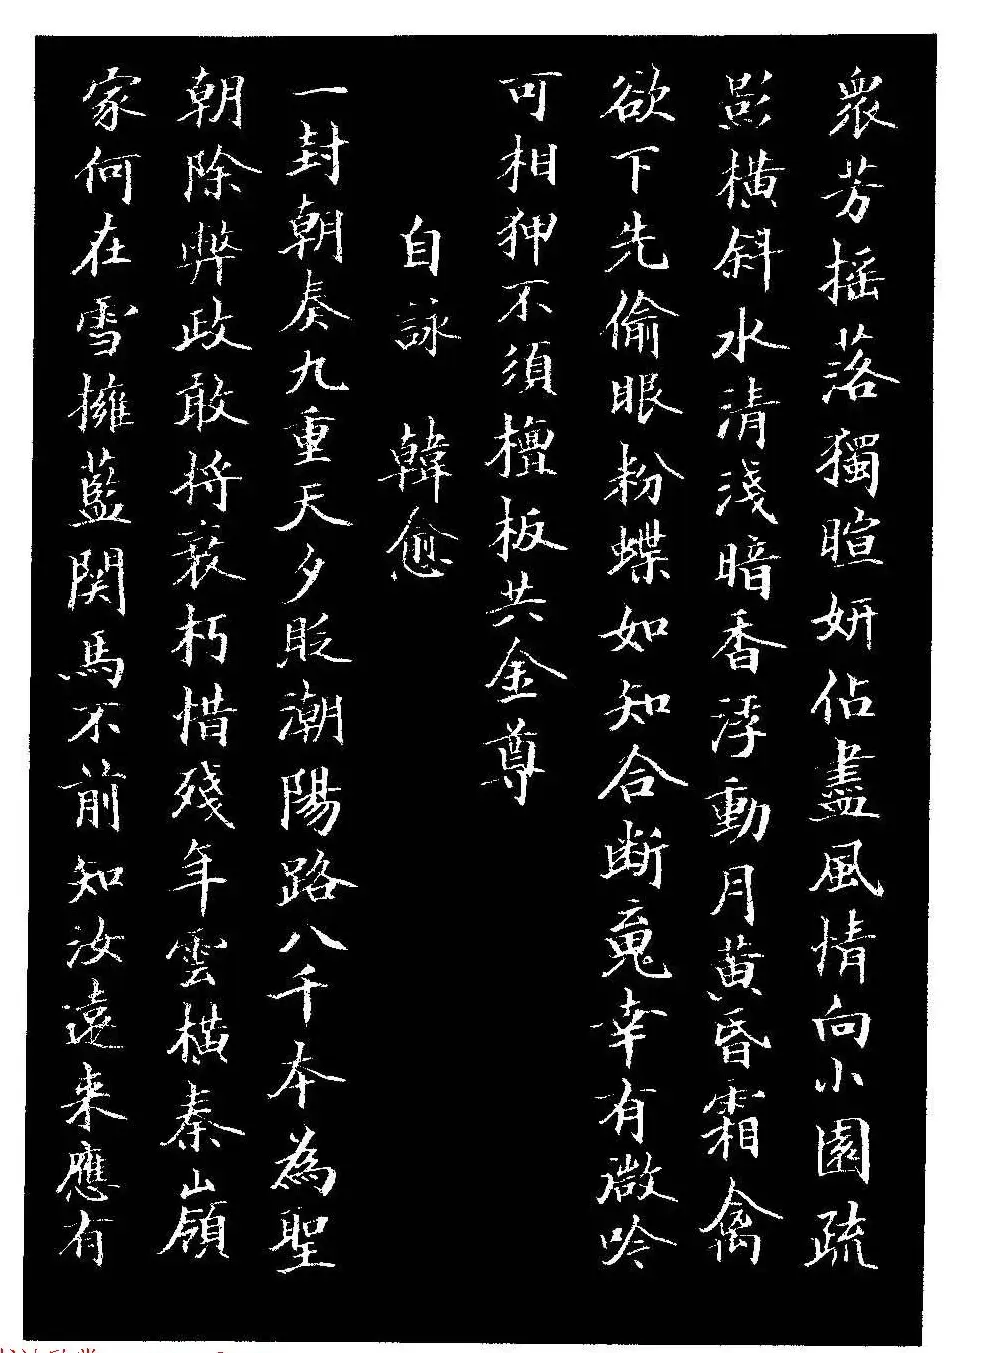 衆芳搖落獨暄妍佔盡風情向小園疏
影橫斜水清淺暗香浮動月黃昏霜禽
欲下先偷眼粉蝶如知合斷魂幸有微吟
可相狎不須檀板共金尊
自詠 韓愈
一封朝奏九重天夕貶潮陽路八千本為聖
朝除弊政敢將衰朽惜殘年雲橫秦嶺
家何在雪擁藍関馬不前知汝遠来應有